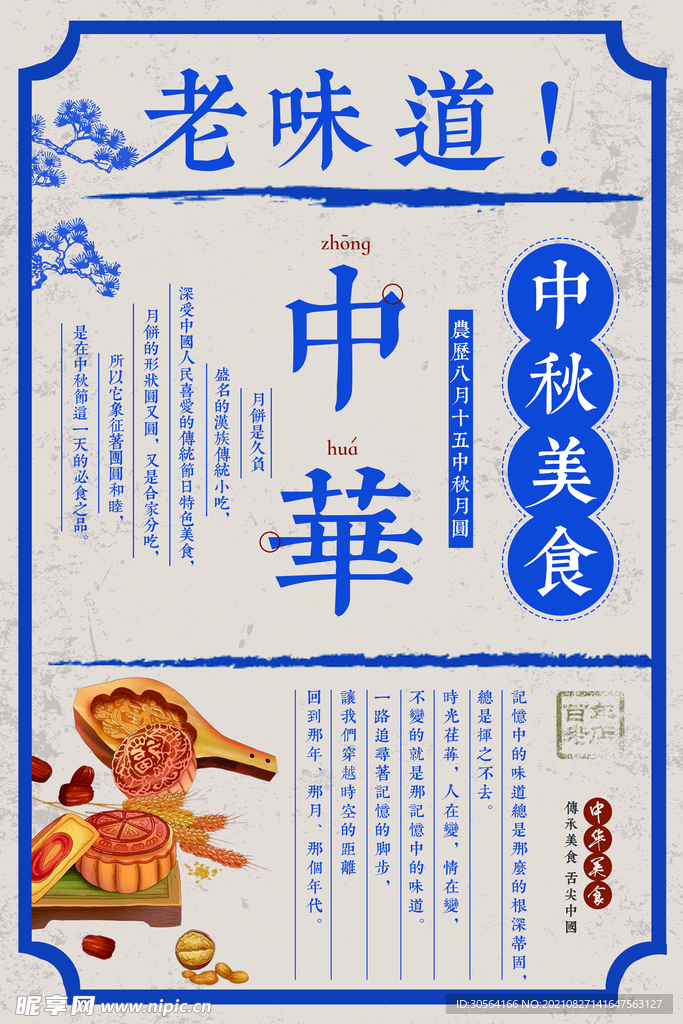 老味道！
中秋美食
農歷八月十五中秋月圓
zhōng
中
huá
華
月餅是久負
盛名的漢族傳統小吃，
深受中國人民喜愛的傳統節日特色美食，
月餅的形狀圓又圓，又是合家分吃，
所以它象征著團圓和睦，
是在中秋節這一天的必食之品。
百年
老店
中华美食
傳承美食 舌尖中國
記憶中的味道總是那麼的根深蒂固，
總是揮之不去。
時光荏苒，人在變，情在變，
不變的就是那記憶中的味道。
一路追尋著記憶的脚步，
讓我們穿越時空的距離
回到那年、那月、那個年代。
昵享网 www.nipic.cn
ID:30564166 NO:20210827141647563127